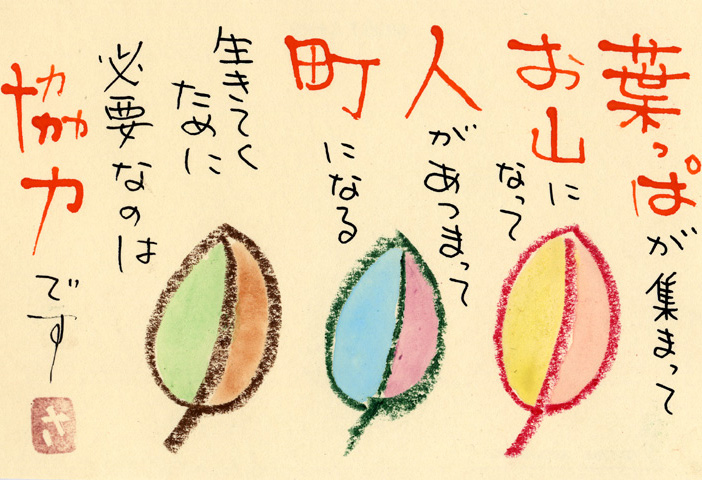 葉っぱが集まって
お山に
なって
人があつまって
町になる
生きてく
ために
必要なのは
協力です
さ